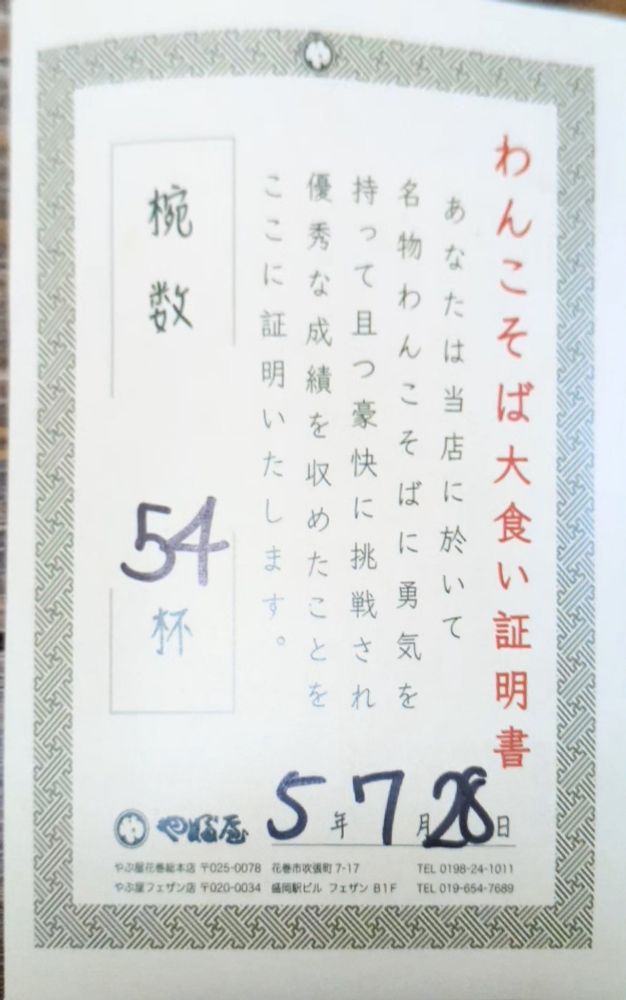 わんこそば大食い証明書
あなたは当店に於いて
名物わんこそばに勇気を
持って且つ豪快に挑戦され
優秀な成績を収めたことを
ここに証明いたします。
椀数 54 杯
5年7月28日
やぶ屋
やぶ屋花巻総本店 〒025-0078 花巻市吹張町7-17 TEL 0198-24-1011
やぶ屋フェザン店 〒020-0034 盛岡駅ビル フェザン B1F TEL 019-654-7689